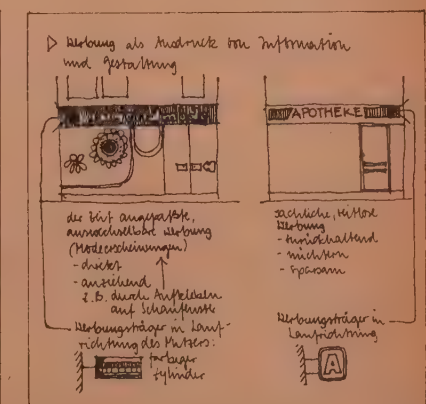 ▷ Werbung als Ausdruck von Information
und Gestaltung
APOTHEKE
der Zeit angepaßte,
auswechselbare Werbung
(Modeerscheinungen)
- direkt
- anziehend
z.B. durch Aufkleben
auf Schaufenster
Werbungsträger in Lauf-
richtung des Nutzers:
farbiger
Zylinder
sachliche, zeitlose
Werbung
- zurückhaltend
- nüchtern
- sparsam
Werbungsträger in
Laufrichtung
A